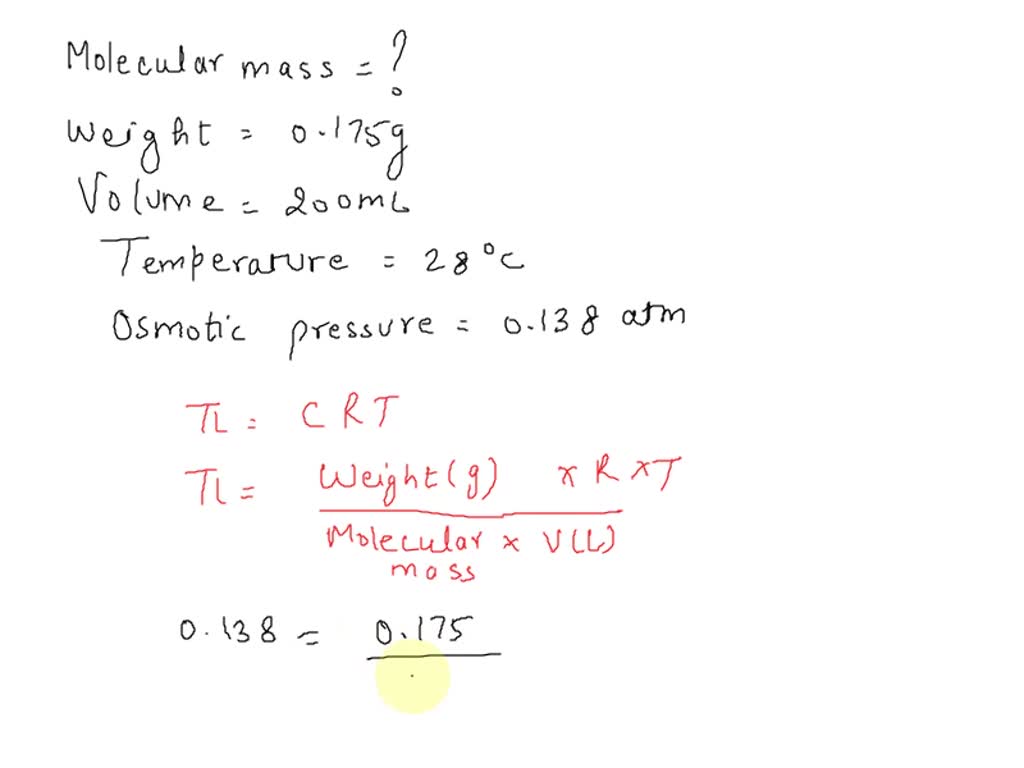 Molecular mass = ?
Weight = 0.175g
Volume = 200mL
Temperature = 28°C
Osmotic pressure = 0.138 atm
π = CRT
π = Weight(g) x R x T
Molecular x V(L)
mass
0.138 = 0.175